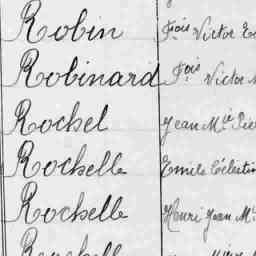 Robin Fçois Victor
Robinard Fçois Victor
Rochel Jean Mie
Rochelle Emile Célestin
Rochelle Henri Jean Me
Rochelle